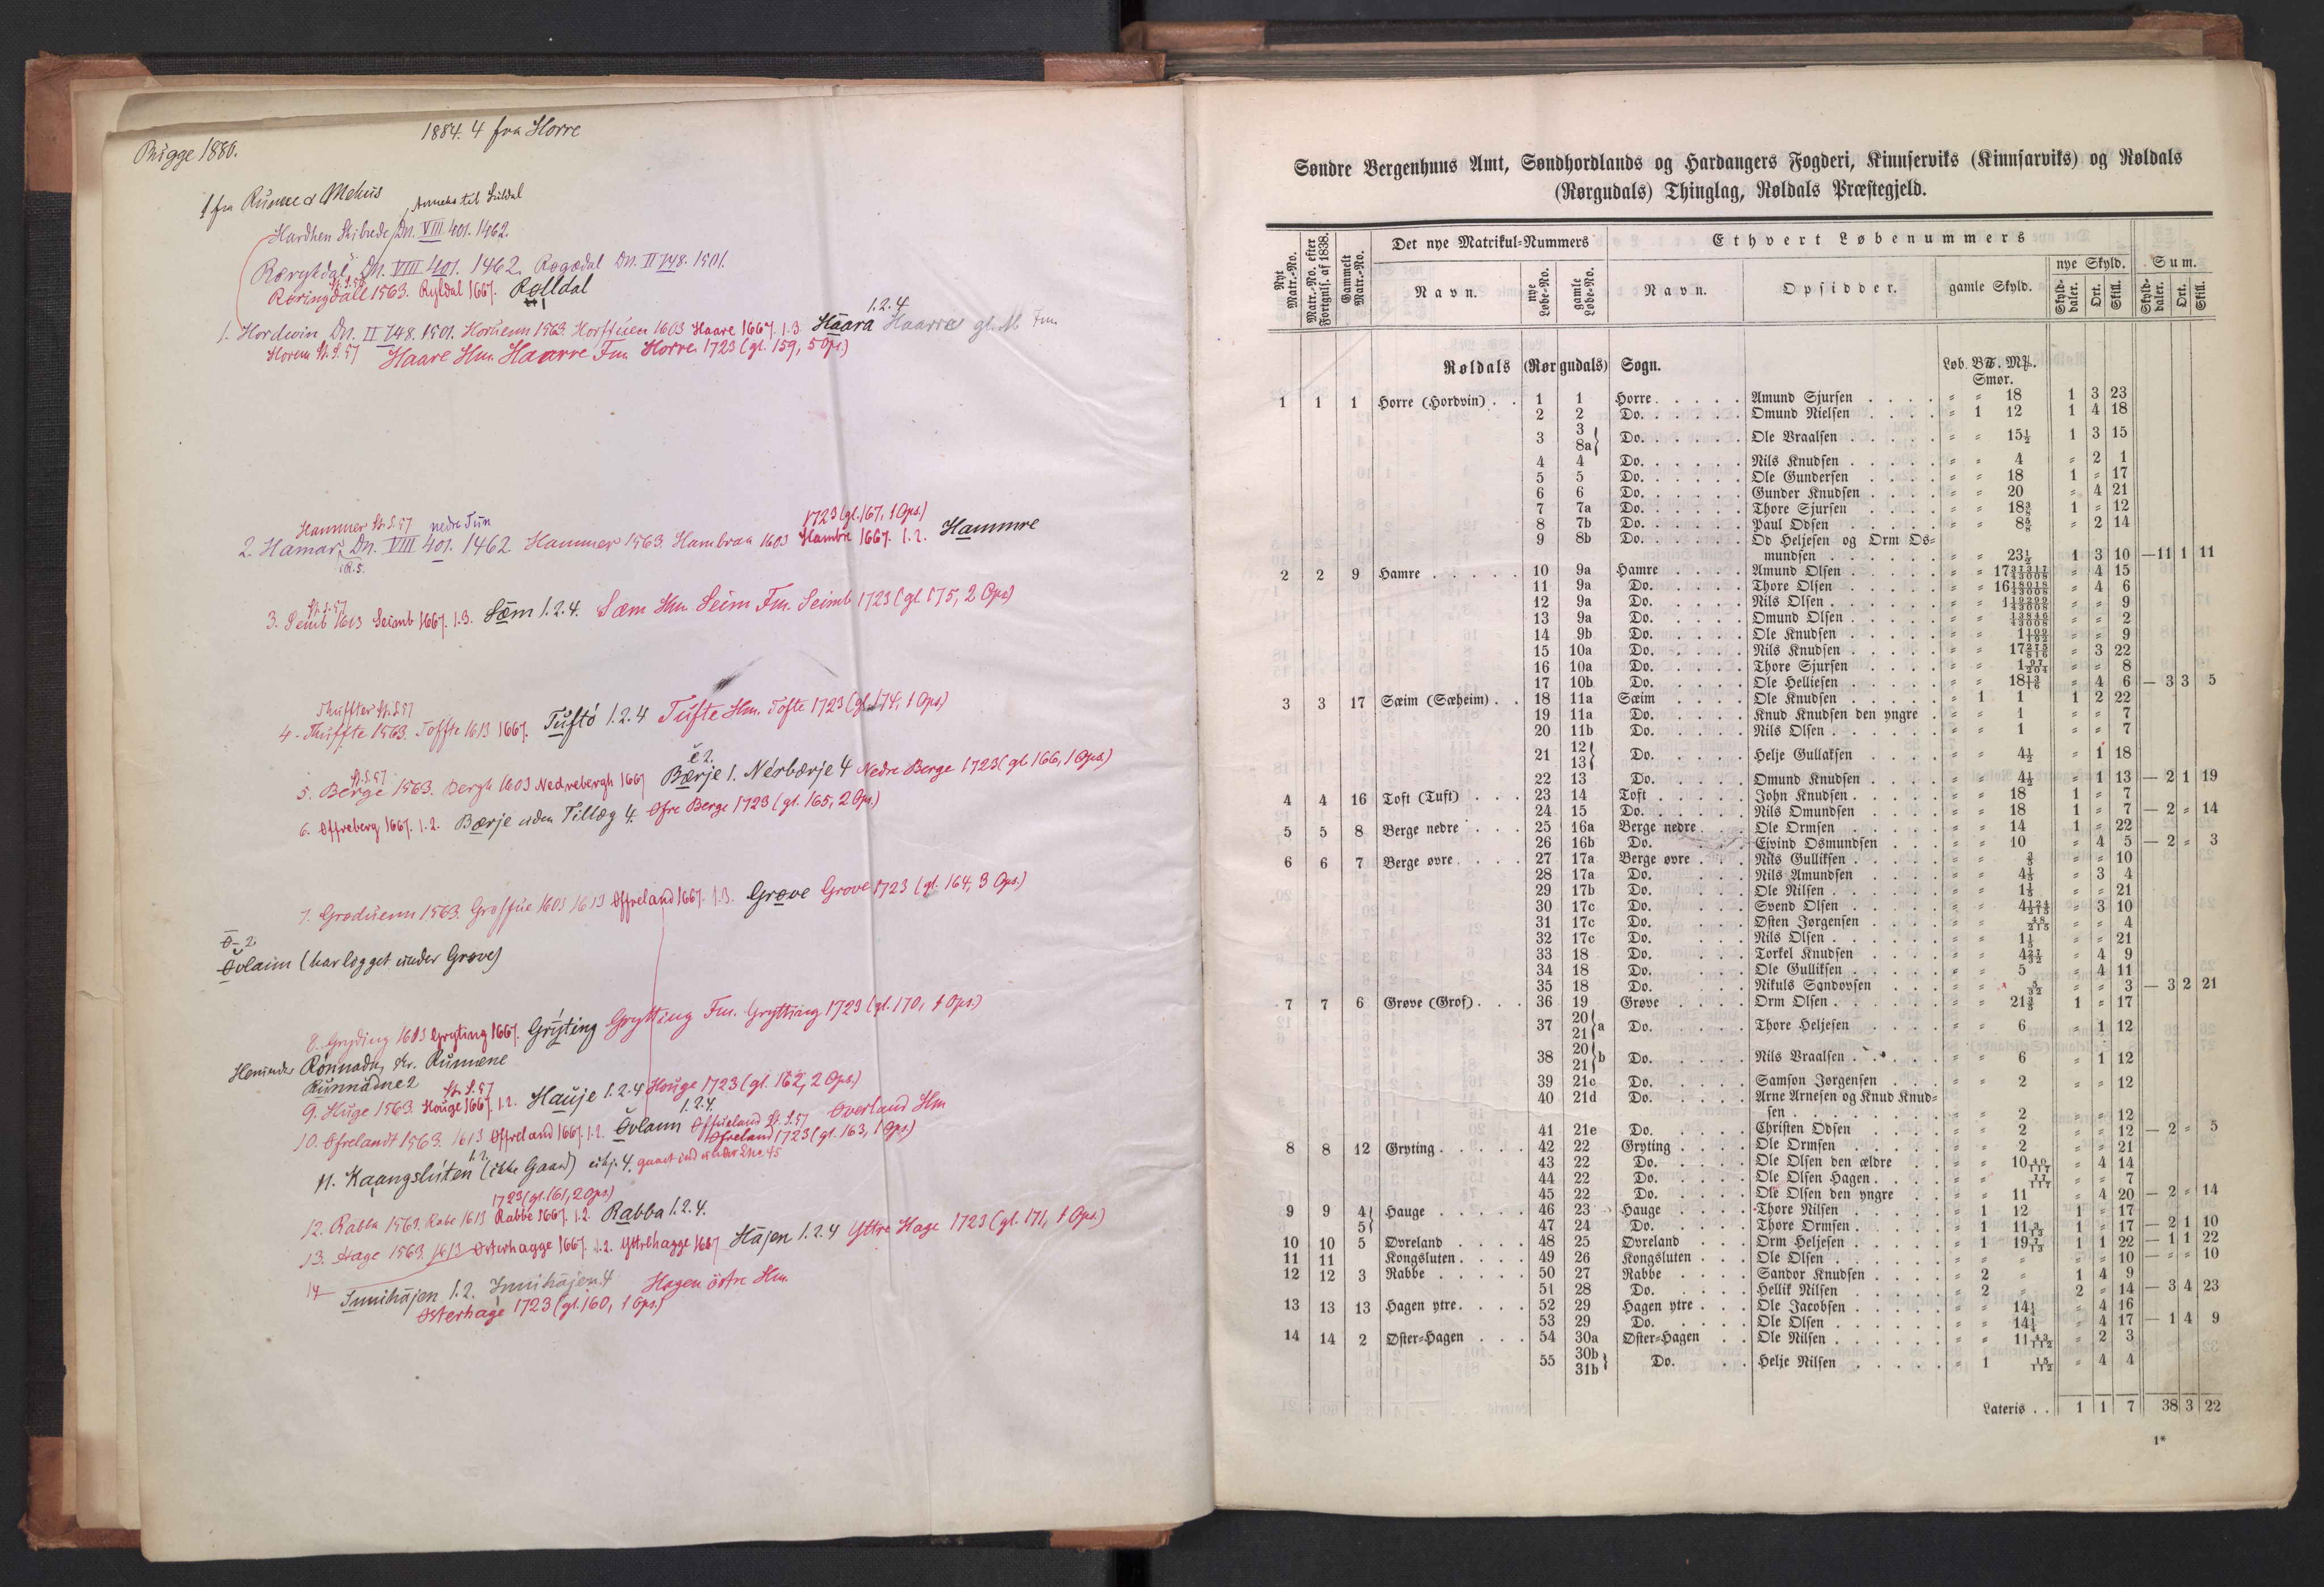 1884. 4 fra Horre
Bugge 1880.
1 fra Runne Mehus
Annex til Suldal
Hardhen Skibrede Dn. VIII 401. 1462.
Dn. VIII 401. 1462. Rogdal Dn. II 748. 1501.
St. S. 57
Røringdall 1563. Ryldal 1667. Rølldal
1.2.4.
1. Hordwin Dn. II 748. 1501. Horuenn 1563. Horffuen 1603 Haare 1667. 1.3. Håara Haarre gl. M Fm.
Horem St. S. 57 Haare Hm. Haarre Fm. Horre 1723 (gl. 159, 5 Ops.)
Hammer St. S. 57 nedre Tun 1723 (gl. 167, 1 Ops.)
2. Hamar, Dn. VIII 401. 1462. Hammer 1563. Hambraa 1603 Hambre 1667. 1.2. Hammre
St. S. 57
3. Semb 1613 Seimb 1667. 1.3. Sæm 1.2.4. Sæm Hm. Seim Fm. Seimb 1723 (gl. 175, 2 Ops.)
Thuffter St. S. 57
4. Thuffte 1563. Toffte 1613 1667. Tuftó 1.2.4 Tufte Hm. Tofte 1723 (gl. 174, 1 Ops.)
St. S. 57
5. Berge 1563. Bergh 1603 Nedrebergh 1667 Bærje 1. Nérbærje 4 Nedre Berge 1723 (gl. 166, 1 Ops.)
6. Offreberg 1667. 1.2. Bærje uden Tillæg 4. Øfre Berge 1723 (gl. 165, 2 Ops.)
7. Groduenn 1563. Groffue 1603 1613 Offreland 1667. 1.3. Grøve Grove 1723 (gl. 164, 3 Ops.)
Øvlaim (har ligget under Grøve)
8. Gryding 1613 Gryting 1667. Grýting Grytting Fm. Grytting 1723 (gl. 170, 1 Ops.)
Herunder Rønnadn, Runnene
Runnadne 2
St. S. 57
9. Huge 1563. Houge 1667. 1.2. Hauje 1.2.4 Houge 1723 (gl. 162, 2 Ops.)
10. Øfrelandt 1563. 1613 Offreland 1667. 1.2. Øvlann 1.2.4. Offrueland St. S. 57 Overland Hm
Øfreland 1723 (gl. 163, 1 Ops.)
11. Kaangslúten 1.2. (ikke Gaard) 4.
1723 (gl. 161, 2 Ops.)
12. Rabba 1563. Rabe 1613 Rabbe 1667. 1.2. Rabba 1.2.4.
13. Hage 1563. 1613 Østerhagge 1667. 1.2. Yttrehagge 1667 Hajen 1.2.4 Yttre Hage 1723 (gl. 171, 1 Ops.)
14 Innihajen 1.2. Innihajen 4 Hagen østre Hm.
Østerhage 1723 (gl. 160, 1 Ops.)
Søndre Bergenhuus Amt, Søndhordlands og Hardangers Fogderi, Kinnserviks (Kinnsarviks) og Røldals
(Rørgudals) Thinglag, Røldals Præstegjeld.
Nyt Matr.-No. Matr.-No. efter Fortgnls. af 1838. Gammelt Matr.-No. Det nye Matrikul-Nummers Ethvert Løbenummers
Navn. nye Løbe-No. gamle Løbe-No. Navn. Opsidder. gamle Skyld. nye Skyld. Sum.
Skylddaler. Ort. Skill. Skylddaler. Ort. Skill.
Røldals (Rørgudals) Sogn. Løb. B℔. M℔.
Smør.
1 1 1 Horre (Hordvin) . . 1 1 Horre . . . . . Amund Sjursen . . . . = = 18 1 3 23
2 2 Do. . . . . . Omund Nielsen . . . . = 1 12 1 4 18
3 3 8a} Do. . . . . . Ole Braalsen . . . . . = = 15½ 1 3 15
4 4 Do. . . . . . Nils Knudsen . . . . . = = 4 = 2 1
5 5 Do. . . . . . Ole Gundersen . . . . = = 18 1 = 17
6 6 Do. . . . . . Gunder Knudsen . . . . = = 20 = 4 21
7 7a Do. . . . . . Thore Sjursen . . . . = = 18⅜ 1 = 12
8 7b Do. . . . . . Paul Odsen . . . . . = = 8⅝ = 2 14
9 8b Do. . . . . . Od Heljesen og Orm Os=
mundsen . . . . . . = = 23½ 1 3 10 —11 1 11
2 2 9 Hamre . . . . . 10 9a Hamre . . . . Amund Olsen . . . . . = = 17 37317/43008 = 4 15
11 9a Do. . . . . Thore Olsen . . . . . = = 16 18018/43008 = 4 6
12 9a Do. . . . . Nils Olsen . . . . . . = = 1 19299/43008 = = 9
13 9a Do. . . . . Omund Olsen . . . . . = = 13846/43008 = = 2
14 9b Do. . . . . Ole Knudsen . . . . . = = 1 109/192 = = 9
15 10a Do. . . . . Nils Knudsen . . . . . = = 17 275/816 = 3 22
16 10a Do. . . . . Thore Sjursen . . . . = = 1 97/204 = = 8
17 10b Do. . . . . Ole Helliesen . . . . = = 18 13/16 = 4 6 — 3 3 5
3 3 17 Sæim (Sæheim) . . 18 11a Sæim . . . . Ole Knudsen . . . . . = 1 1 1 2 22
19 11a Do. . . . . Knud Knudsen den yngre . = = 1 = = 7
20 11b Do. . . . . Nils Olsen . . . . . . = = 1 = = 7
21 12 13} Do. . . . . Helje Gullaksen . . . . = = 4½ = 1 18
22 13 Do. . . . . Omund Knudsen . . . . = = 4½ = 1 13 — 2 1 19
4 4 16 Toft (Tuft) . . . 23 14 Toft . . . . . John Knudsen . . . . . = = 18 1 = 7
24 15 Do. . . . . . Nils Omundsen . . . . = = 18 1 = 7 — 2 = 14
5 5 8 Berge nedre . . . 25 16a Berge nedre . . Ole Ormsen . . . . . = = 14 1 = 22
26 16b Do. . . . Ejvind Osmundsen . . . = = 10 = 4 5 — 2 = 3
6 6 7 Berge øvre . . . . 27 17a Berge øvre . . . Nils Gulliksen . . . . = = ⅗ = = 10
28 17a Do. . . . Nils Amundsen . . . . = = 4⅕ = 3 4
29 17b Do. . . . Ole Nilsen . . . . . . = = 1⅕ = = 21
30 17c Do. . . . Svend Olsen . . . . . = = 4 124/215 = 3 10
31 17c Do. . . . Østen Jørgensen . . . . = = 48/215 = = 4
32 17c Do. . . . Nils Olsen . . . . . . = = 1⅕ = = 21
33 18 Do. . . . Torkel Knudsen . . . . = = 4 27/32 = 4 9
34 18 Do. . . . Ole Gulliksen . . . . . = = 5 = 4 11
35 18 Do. . . . Nikuls Sandovsen . . . = = 5/32 = = 3 — 3 2 21
7 7 6 Grøve (Grof) . . . 36 19 Grøve . . . . Orm Olsen . . . . . . = = 21⅗ 1 = 17
37 20 21}a Do. . . . . Thore Heljesen . . . . = = 6 = 1 12
38 20 21}b Do. . . . . Nils Braalsen . . . . . = = 6 = 1 12
39 21c Do. . . . . Samson Jørgensen . . . = = 2 = = 12
40 21d Do. . . . . Arne Arnesen og Knud Knud=
sen . . . . . . . = = 2 = = 12
41 21e Do. . . . . Christen Odsen . . . . = = 2 = = 12 — 2 = 5
8 8 12 Gryting . . . . . 42 22 Gryting . . . . Ole Ormsen . . . . . = = 2 = = 21
43 22 Do. . . . . Ole Olsen den ældre . . = = 10 40/117 = 4 14
44 22 Do. . . . . Ole Olsen Hagen . . . . = = 77/117 = = 7
45 22 Do. . . . . Ole Olsen den yngre . . = = 11 = 4 20 — 2 = 14
9 9 4 5} Hauge . . . . . 46 23 Hauge . . . . Thore Nilsen . . . . . = 1 12 1 = 17
47 24 Do. . . . . Thore Ormsen . . . . . = 1 11 3/13 1 = 17 — 2 1 10
10 10 5 Øvreland . . . . 48 25 Øvreland . . . Orm Heljesen . . . . . = 1 19 7/13 1 1 22 — 1 1 22
11 11 Kongsluten . . . . 49 26 Kongsluten . . . Ole Olsen . . . . . . = = = = = 10 — = = 10
12 12 3 Rabbe . . . . . 50 27 Rabbe . . . . Sandor Knudsen . . . . = 2 = 1 4 9
51 28 Do. . . . . Hellik Nilsen . . . . . = 2 = 2 = 14 — 3 4 23
13 13 13 Hagen ytre . . . . 52 29 Hagen ytre . . . Ole Jacobsen . . . . . = = 14¼ = 4 16
53 29 Do. . . . Ole Olsen . . . . . . = = 14¼ = 4 17 — 1 4 9
14 14 2 Øster=Hagen . . . 54 30a Øster=Hagen . . Ole Nilsen . . . . . . = = 11 43/112 = 2 3
55 30b 31b} Do. . . Helje Nilsen . . . . . = 1 15/112 = 4 4
Lateris . . 1 1 7 38 3 22
1*